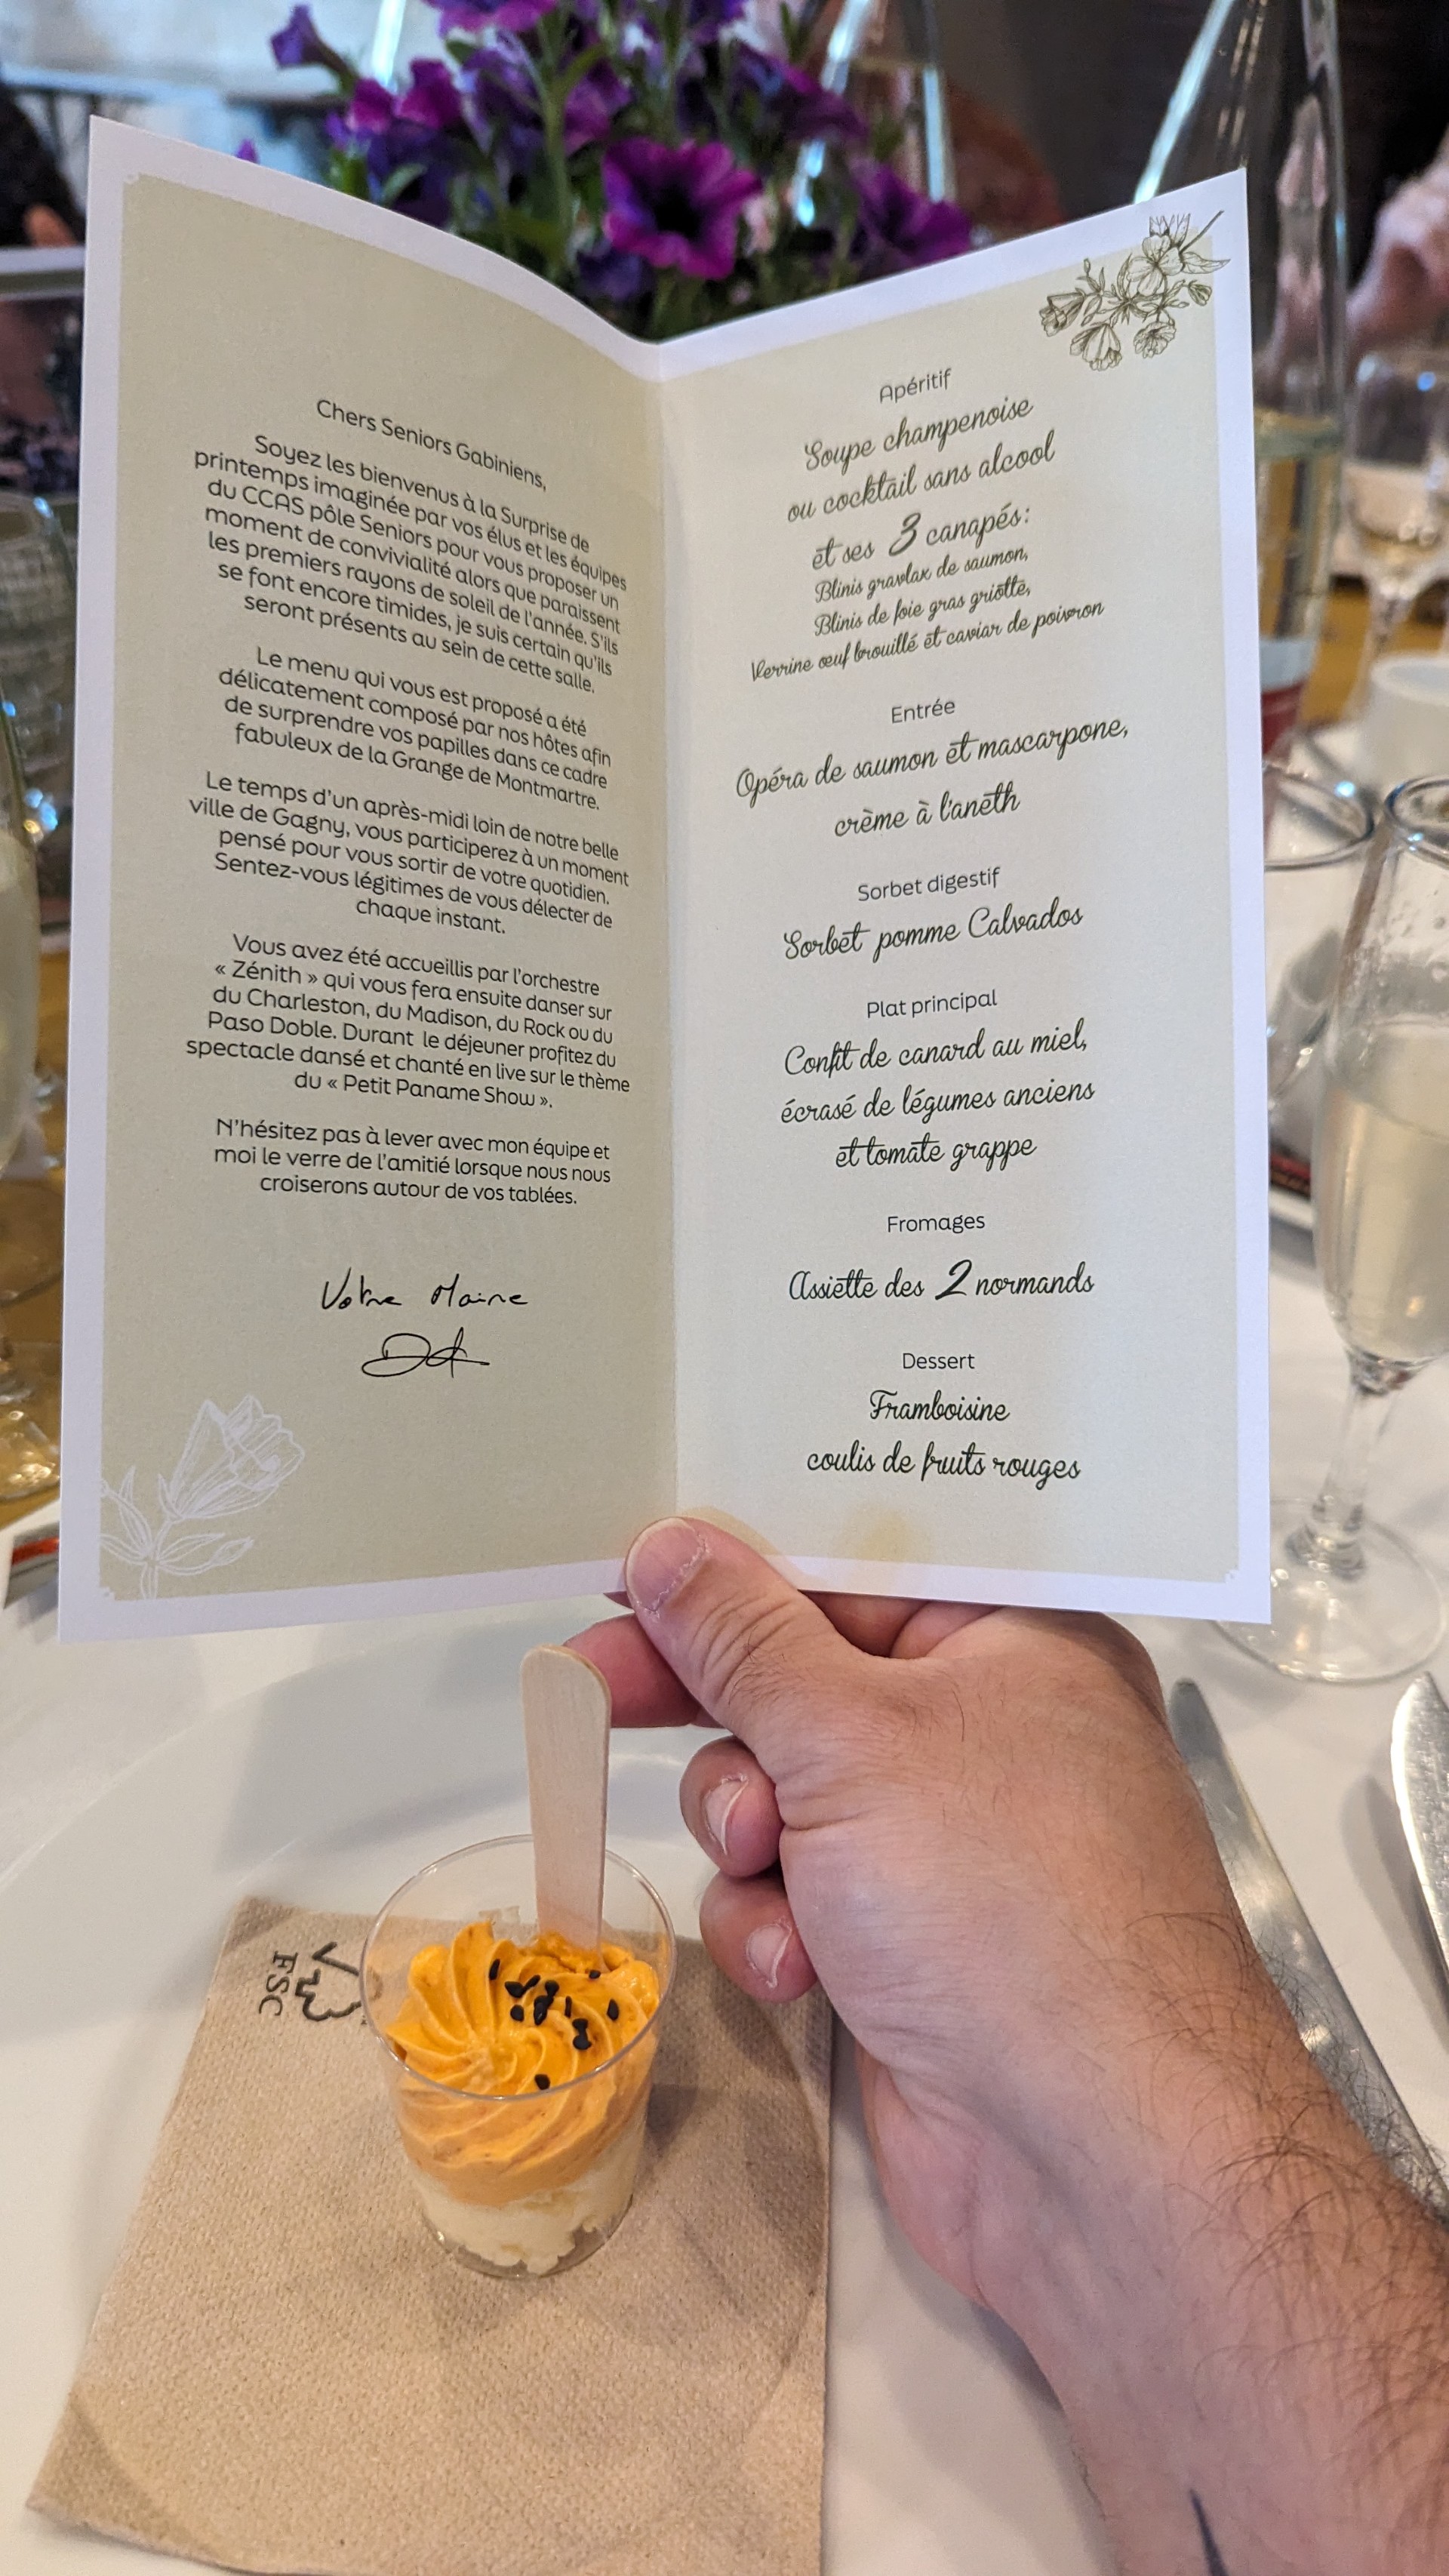 Chers Seniors Gabiniens,
Soyez les bienvenus à la Surprise de
printemps imaginée par vos élus et les équipes
du CCAS pôle Seniors pour vous proposer un
moment de convivialité alors que paraissent
les premiers rayons de soleil de l'année. S'ils
se font encore timides, je suis certain qu'ils
seront présents au sein de cette salle.
Le menu qui vous est proposé a été
délicatement composé par nos hôtes afin
de surprendre vos papilles dans ce cadre
fabuleux de la Grange de Montmartre.
Le temps d'un après-midi loin de notre belle
ville de Gagny, vous participerez à un moment
pensé pour vous sortir de votre quotidien.
Sentez-vous légitimes de vous délecter de
chaque instant.
Vous avez été accueillis par l'orchestre
« Zénith » qui vous fera ensuite danser sur
du Charleston, du Madison, du Rock ou du
Paso Doble. Durant le déjeuner profitez du
spectacle dansé et chanté en live sur le thème
du « Petit Paname Show ».
N'hésitez pas à lever avec mon équipe et
moi le verre de l'amitié lorsque nous nous
croiserons autour de vos tablées.
Votre Maire
Apéritif
Soupe champenoise
ou cocktail sans alcool
et ses 3 canapés:
Blinis gravlax de saumon,
Blinis de foie gras griotte,
Verrine œuf brouillé et caviar de poivron
Entrée
Opéra de saumon et mascarpone,
crème à l'aneth
Sorbet digestif
Sorbet pomme Calvados
Plat principal
Confit de canard au miel,
écrasé de légumes anciens
et tomate grappe
Fromages
Assiette des 2 normands
Dessert
Framboisine
coulis de fruits rouges
FSC